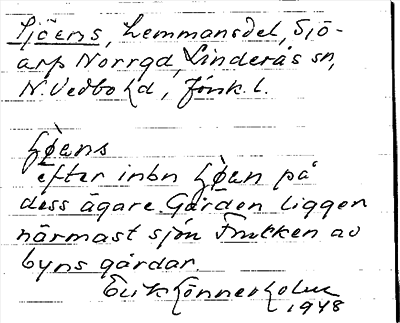 Sjöens, Lemmansdel, Sjö-
arp Norrgd, Linderås sn,
N. Vedbo hd, Jönk. l.
efter inbn på
dess ägare. Gården ligger
närmast sjön av
byns gårdar.
Erik Lönnerholm
1948